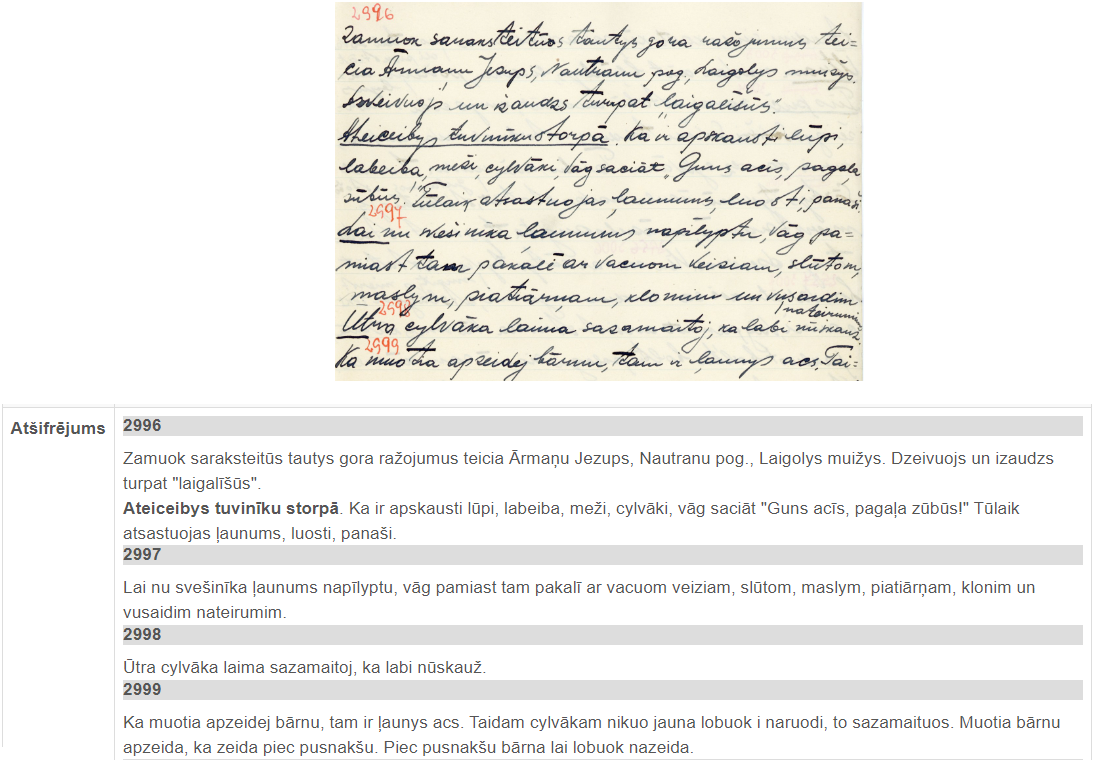 2996
Zamuok saraksteitūos tautys gora ražojumus tei=
cia Ārmaņu Jezups, Nautranu pog., Laigolys muižys.
Dzeivuojs un izaudzs turpat "laigalīšūs".
Ateiceibys tuvinīku storpā. Ka ir apskausti lūpi,
labeiba, meži, cylvāki, vāg saciāt "Guns acīs, pagaļa
zūbūs!" Tūlaik atsastuojas ļaunums, luosti, panaši.
2997
Lai nu svešinīka ļaunums napīlyptu, vāg pa=
miast tam pakalī ar vacuom veiziam, slūtom,
maslym, piatiārņam, klonim un vusaidim
nateirumim
2998
Ūtra cylvāka laima sazamaitoj, ka labi nūskauž.
2999
Ka muotia apzeidej bārnu, tam ir ļaunys acs. Tai=
Atšifrējums
2996
Zamuok saraksteitūs tautys gora ražojumus teicia Ārmaņu Jezups, Nautranu pog., Laigolys muižys. Dzeivuojs un izaudzs
turpat "laigalīšūs".
Ateiceibys tuvinīku storpā. Ka ir apskausti lūpi, labeiba, meži, cylvāki, vāg saciāt "Guns acīs, pagaļa zūbūs!" Tūlaik
atsastuojas ļaunums, luosti, panaši.
2997
Lai nu svešinīka ļaunums napīlyptu, vāg pamiast tam pakalī ar vacuom veiziam, slūtom, maslym, piatiārņam, klonim un
vusaidim nateirumim.
2998
Ūtra cylvāka laima sazamaitoj, ka labi nūskauž.
2999
Ka muotia apzeidej bārnu, tam ir ļaunys acs. Taidam cylvākam nikuo jauna lobuok i naruodi, to sazamaituos. Muotia bārnu
apzeida, ka zeida piec pusnakšu. Piec pusnakšu bārna lai lobuok nazeida.